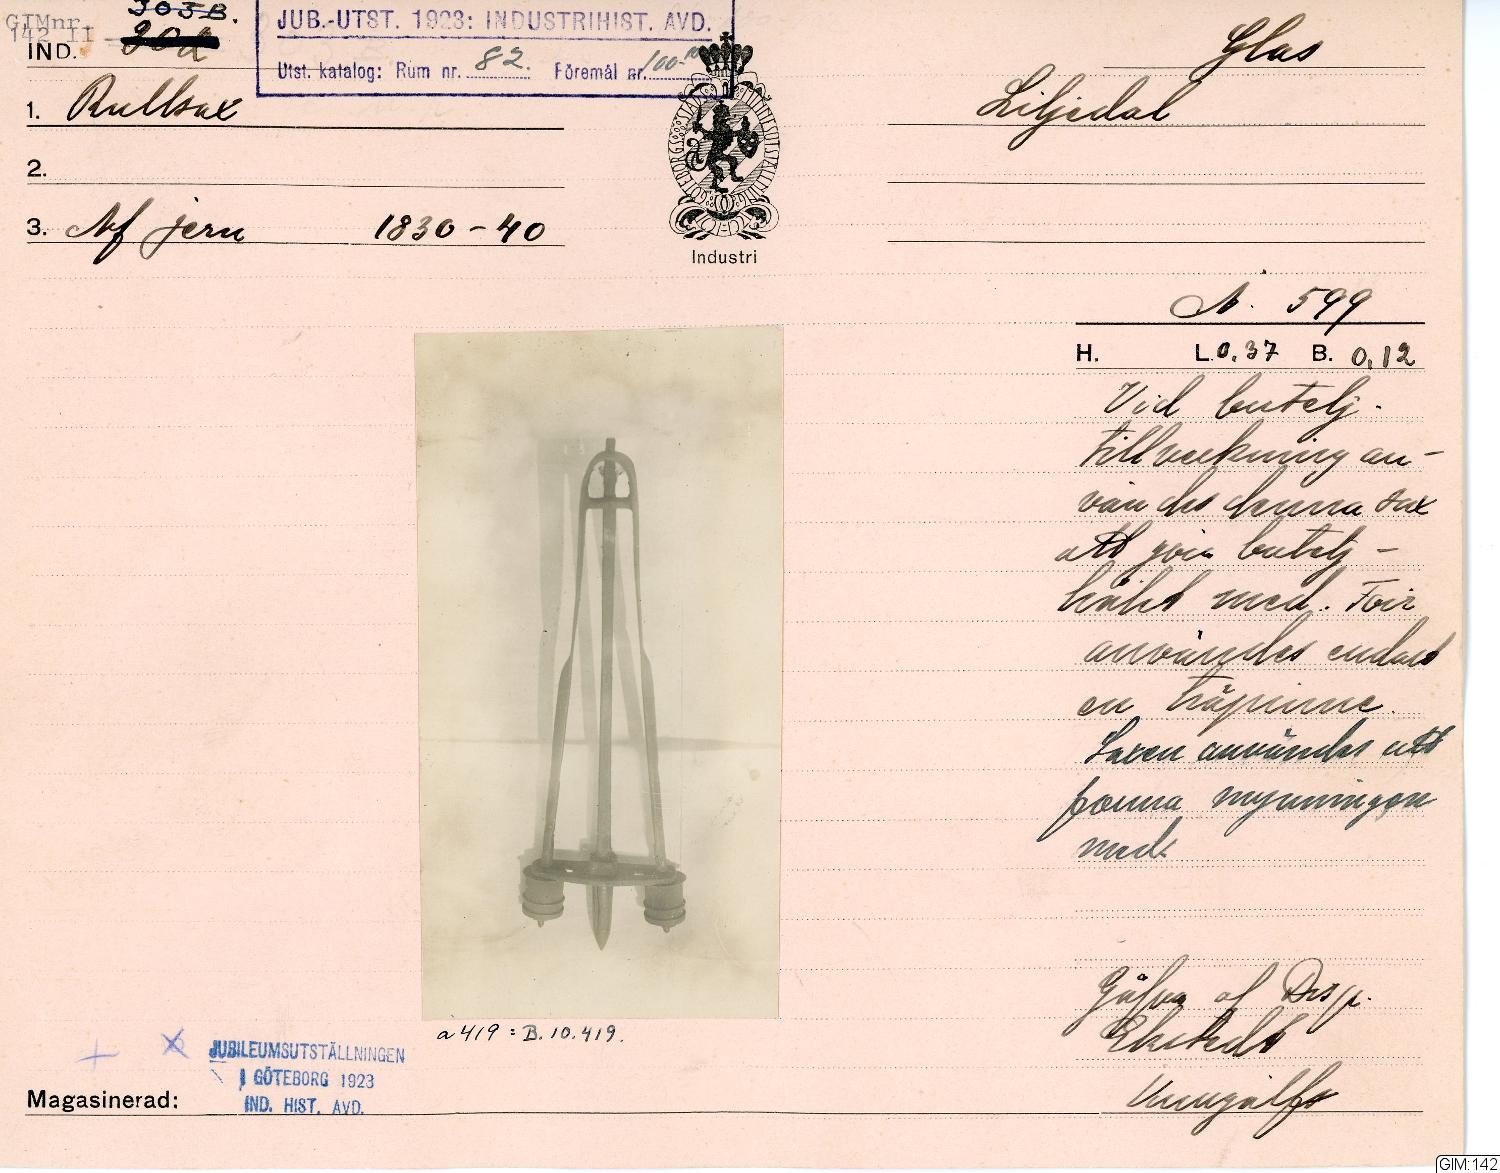 GIMnr.
142 II
303B.
IND.
JUB.-UTST. 1923: INDUSTRIHIST. AVD.
Utst. katalog: Rum nr. 82. Föremål nr. 100.
Glas
1. Rullsax
Liljedal
2.
3. Af jern 1830-40
GÖTEBORGS STADS JUBILEUMSUTSTÄLLNING
Industri
N. 599
H. L. 0,37 B. 0,12
Vid butelj-
tillverkning an-
vändes denna sax
att göra butelj-
hålet med. Förr
användes endast
en träpinne.
Saxen användes att
forma mynningen
med.
Gåfva af Disp.
Ekstedt
Kungälfs
a 419 : B. 10.419.
JUBILEUMSUTSTÄLLNINGEN
I GÖTEBORG 1923
IND. HIST. AVD.
Magasinerad:
GIM:142